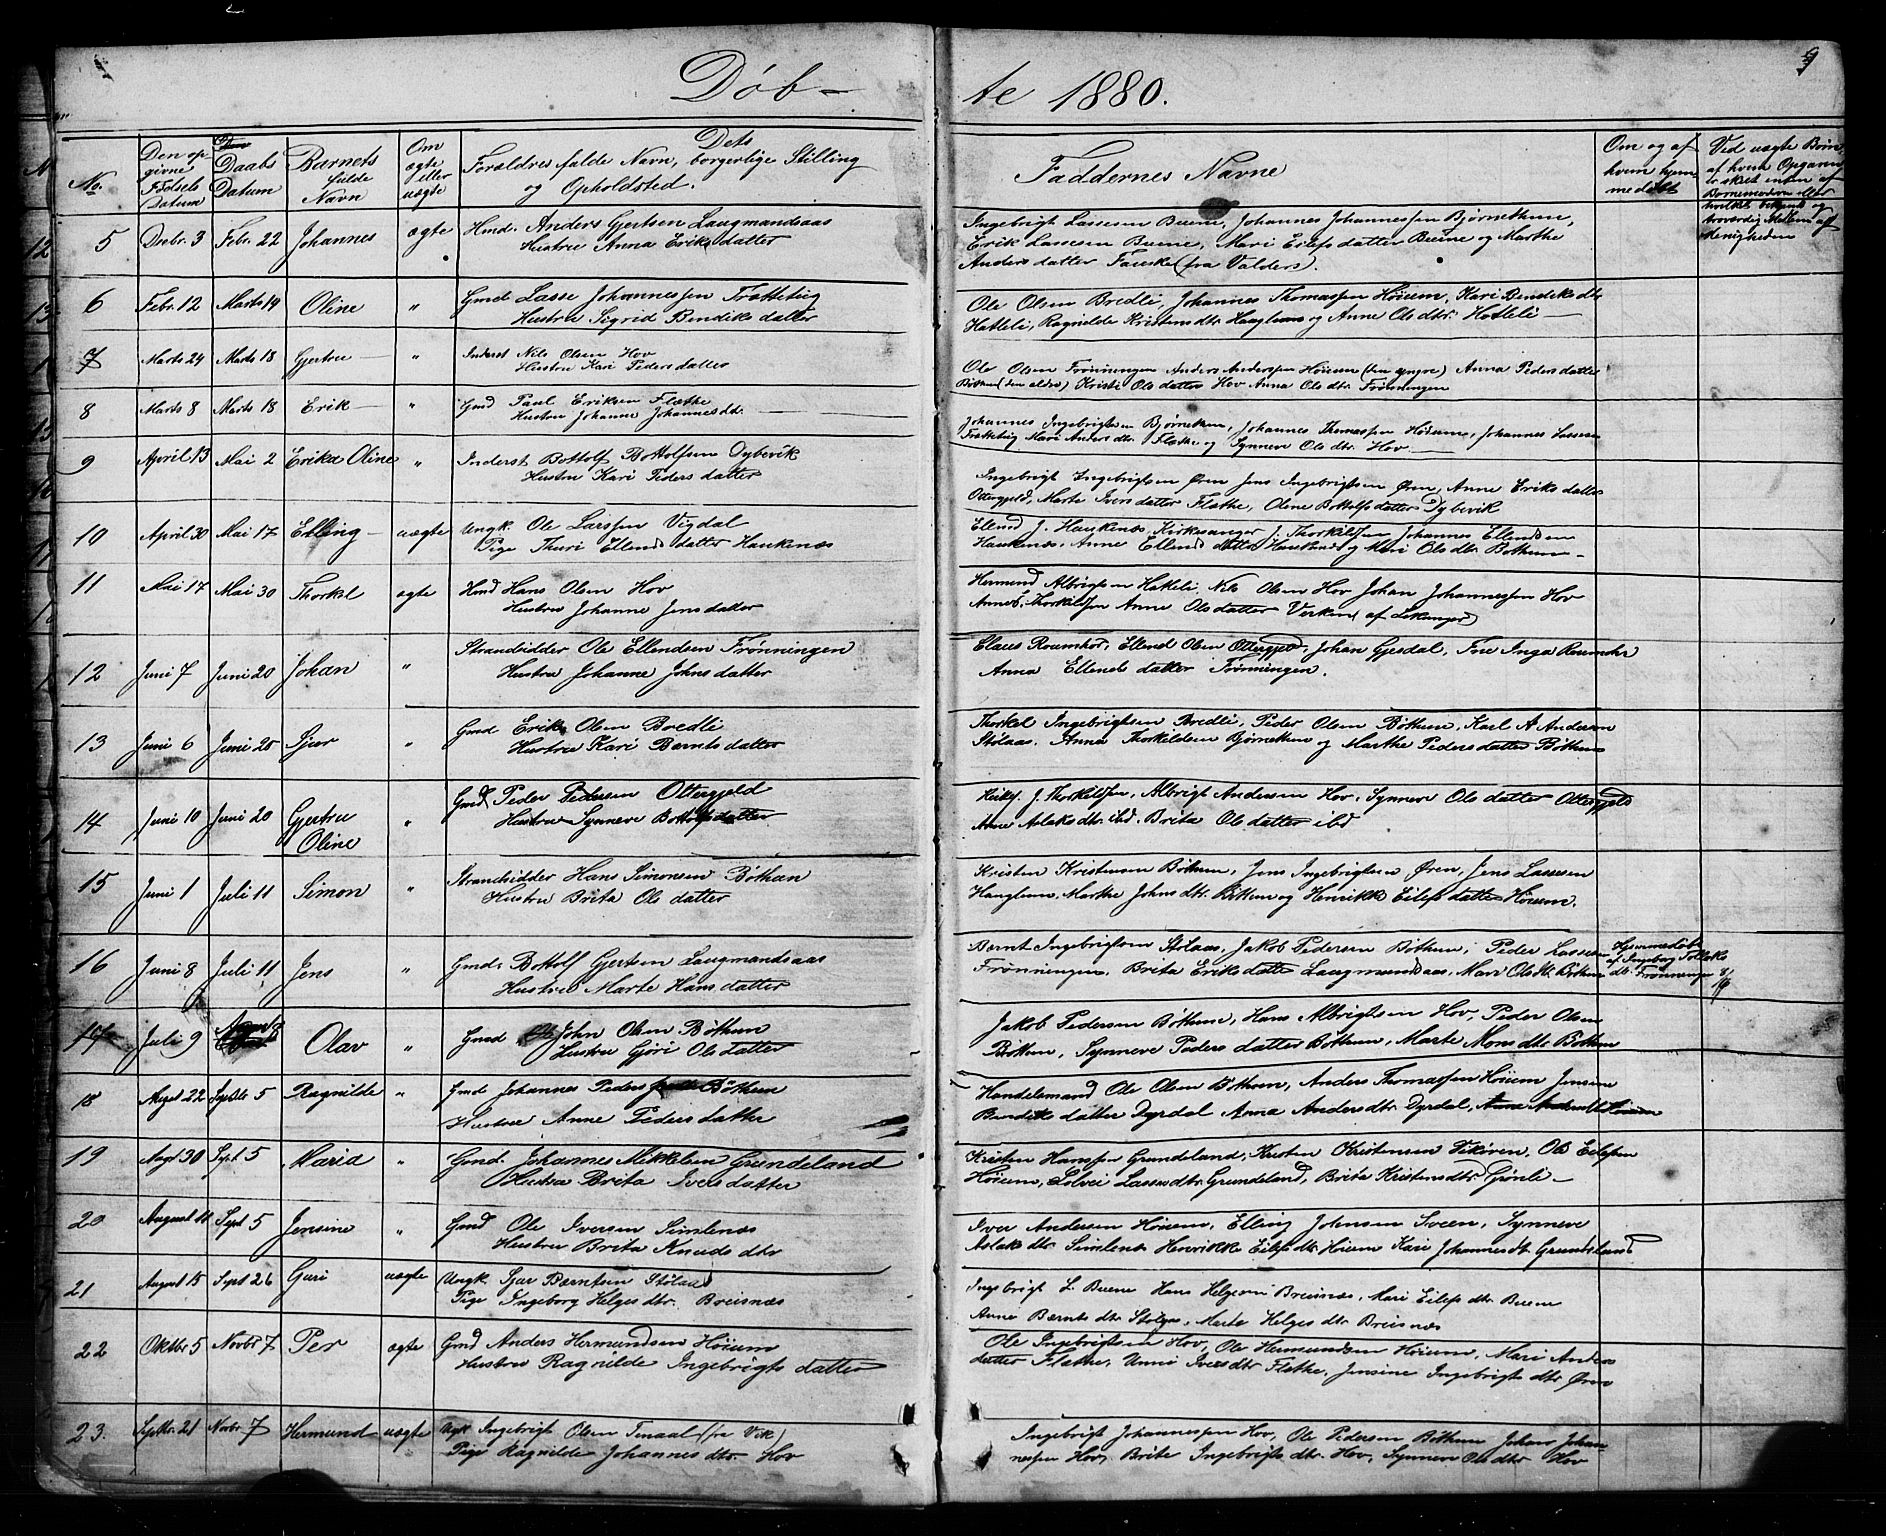 Døb-
te 1880.
9
No.
Den op
givne
Fødsels
Datum
Daabs
Datum
Barnets
fulde
Navn
Om
ægte
eller
uægte
Dets
Forældres fulde Navn, borgerlige Stilling
og Opholdsted.
Faddernes Navne
Om og af
hvem hjem-
medøbt
Ved uægte Børn
5 Debr. 3 Febr. 22 Johannes ægte Hmd. Anders Gjertsen Laugmandsaas
Hustru Anna Eriksdatter
Ingebrigt Lassesen Buene, Johannes Johannessen Bjørnethun,
Erik Lassesen Buene, Mari Eilefsdatter Buene og Marthe
Andersdatter Fauske (fra Valders).
6 Febr. 12 Marts 19 Oline " Gmd Lasse Johannessen Trætteteig
Hustru Sigrid Bendiksdatter
Ole Olsen Bredli, Johannes Thomassen Høium, Kari Bendiksdtr
Hatleli, Ragnilde Kristensdtr. Hauglum og Anne Olsdtr. Hatleli —
7 Marts 24 Marts 18 Gjertru — " Inderst Nils Olsen Hov
Hustru Kari Pedersdatter
Ole Olsen Frønningen Anders Anderssen Høium (den yngre) Anna Pedersdatter
Bøthun (den ældre) Kristi Olsdatter Hov Anna Olsdtr. Frønningen
8 Marts 8 Marts 18 Erik — " Gmd Paul Eriksen Flæthe
Hustru Johanne Johannesdtr. —
Johannes Ingebrigtsen Bjørnethun, Johannes Thomassen Høium, Johannes Lassesen
Trætteteig Mari Andersdtr Flæthe og Synneve Olsdtr. Hov —
9 April 13 Mai 2 Erika Oline " Inderst Bottolf Bottolfsen Dybevik
Hustru Kari Pedersdatter
Ingebrigt Ingebrigtsen Øren Jens Ingebrigtsen Øren, Anne Eriksdatter
Ottergjeld, Marte Iversdatter Flæthe, Olene Bottolfsdatter Dybevik
10 April 30 Mai 17 Elling — uægte Ungk. Ole Larssen Vigdal
Pige Thuri Ellendsdatter Haukenæs
Ellend J. Haukenæs, Kirkesanger J. Thorkildsen Johannes Ellendsen
Haukenæs, Anne Ellendsdatter Haukenæs og Mari Olsdtr. Bøthun —
11 Mai 17 Mai 30 Thorkel ægte Hmd Hans Olsen Hov
Hustru Johanne Jensdatter
Hermund Albrigtsen Hatleli Nils Olsen Hov Johan Johannessen Hov
Thorkildsen Anne Olsdatter
12 Juni 7 Juni 20 Johan " Strandsidder Ole Ellendsen Frønningen
Hustru Johanne Johnsdatter
Claus Roumhor, Ellend Olsen Ottergjeld, Johan Gjesdal, Fru Inga Roumohr
Anna Ellendsdatter Frønningen.
13 Juni 6 Juni 20 Sjur " Gmd Erik Olsen Bredli
Hustru Kari Berntsdatter
Thorkel Ingebrigtsen Bredli, Peder Olsen Bøthun, Karl A Andersen
Stølaas. Anna Thorkildsen Bjørnethun og Marthe Pedersdatter Bøthun
14 Juni 10 Juni 20 Gjertru
Oline " Gmd Peder Pedersen Ottergjeld
Hustru Synneve Bottolfsdatter
J. Thorkildsen, Albrigt Andersen Hov, Synneve Olsdatter Ottergjeld
Anne Aslaksdtr. ibd. Brita Olsdatter ibd
15 Juni 1 Juli 11 Simon " Strandsidder Hans Simonsen Bøthun
Hustru Brita Olsdatter
Kristen Kristensen Bøthun, Jens Ingebrigtsen Øren, Jens Lassesen
Hauglum, Marthe Johnsdtr. Bøthun og Henrikke Eilefsdatter Høium.
16 Juni 8 Juli 11 Jens " Gmd. Bottolf Gjertsen Laugmandsaas
Hustru Marte Hansdatter
Bernt Ingebrigtsen Stølaas, Jakob Pedersen Bøthun, Peder Lassesen
Frønningen, Brita Eriksdatter Laugmandsaas, Mari Olsdtr. Bøthun
Hjemmedøbt
af Ingeborg
dtr. Frønningen
17 Juli 9 Olav " Gmd John Olsen Bøthun
Hustru Gjøri Olsdatter
Jakob Pedersen Bøthun, Hans Albrigtsen Hov, Peder Olsen
Bøthun, Synneve Pedersdatter Bøthun, Marte Monsdtr. Bøthun
18 Augst 22 Septbr 5 Ragnilde " Gmd Johannes Peders Bøthun
Hustru Anne Pedersdatter
Handelsmand Ole Olsen Bøthun, Anders Thomassen Høium Jensine
Bendiksdatter Dyrdal Anna Andersdtr. Dyrdal,
19 Augst 30 Sept 5 Maria " Gmd. Johannes Mikkelsen Grundeland
Hustru Brita Iversdatter
Kristen Hanssen Grundeland, Kristen Kristensen Vikøren, Ole Eilefsen
Høium, Solvei Lassesdtr. Grundeland, Brita Kristensdtr Grønli —
20 August 11 Sept 5 Jensine " Gmd Ole Iversen Simlenæs
Hustru Brita Knudsdtr
Iver Andersen Høium, Elling Johnsen Sveen, Synneve
Aslaksdtr Simlenæs Henrikke Eilefsdtr Høium Kari Johannesdtr. Grundeland
21 August 15 Sept 26 Guri uægte Ungk. Sjur Berntsen Stølaas
Pige Ingeborg Helgesdtr. Breisnæs
Ingebrigt L. Buene Hans Helgesen Breisnæs, Mari Eilefsdtr. Buene
Anne Berntsdtr Stølaas, Marte Helgesdtr Breisnæs
22 Oktbr 5 Novbr 7 Per ægte Gmd Anders Hermundsen Høium
Hustru Ragnilde Ingebrigtsdatter
Ole Ingebrigtsen Hov, Ole Hermundsen Høium, Mari Anders
datter Flæthe, Unni Iversdtr Flæthe, Jensine Ingebrigtsdtr Øren
23. Septbr. 21 Novbr 7 Hermund uægte Ugk Ingebrigt Olsen Tenaal (fra Vik)
Pige Ragnilde Johannesdtr. Hov
Ingebrigt Johannessen Hov, Ole Pedersen Bøthun Johans Johan-
nessen Hov, Brite Ingebrigtsdtr. Hov, Synneve Olsdtr Hov